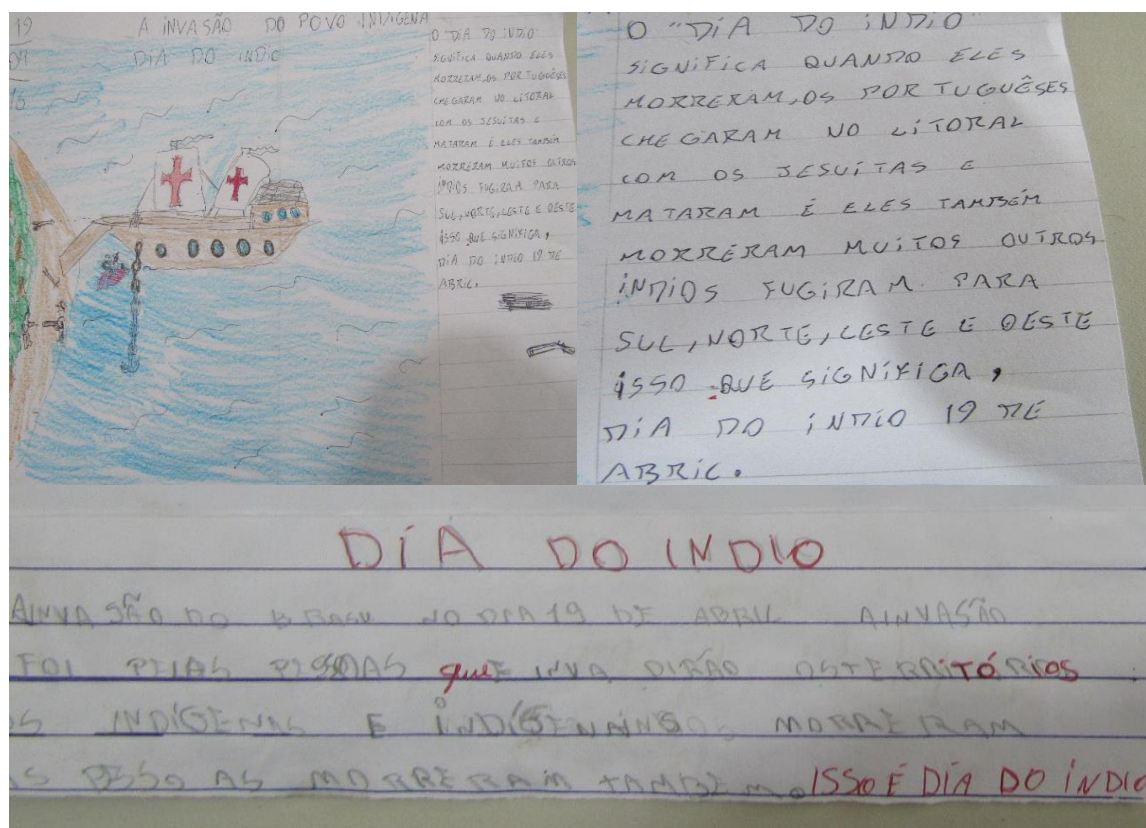 19
04
A INVASÃO DO POVO INDIGENA
DIA DO INDIO
O "DIA DO INDIO"
SIGNIFICA QUANDO ELES
MORRERAM, OS PORTUGUÊSES
CHEGARAM NO LITORAL
COM OS JESUITAS E
MATARAM E ELES TAMBÉM
MORRERAM MUITOS OUTROS
INDIOS FUGIRAM PARA
SUL, NORTE, LESTE E OESTE
ISSO QUE SIGNIFIGA,
DIA DO INDIO 19 DE
ABRIL.
O "DIA DO INDIO"
SIGNIFICA QUANDO ELES
MORRERAM, OS PORTUGUÊSES
CHEGARAM NO LITORAL
COM OS JESUITAS E
MATARAM É ELES TAMBÉM
MORRERAM MUITOS OUTROS
ÍNDIOS FUGIRAM PARA
SUL, NORTE, LESTE E OESTE
ISSO QUE SIGNIFIGA,
DIA DO INDIO 19 DE
ABRIL.
DÍA DO INDIO
AINVASÃO DO BRASIL NO DIA 19 DE ABRIL AINVASÃO
FOI PELAS PESOAS que INVADIRÃO OSTERRITÓRIOS
OS INDÍGENAS E MORRERAM
AS PESSOAS MORRERAM TAMBEM. ISSO É DÍA DO ÍNDIO